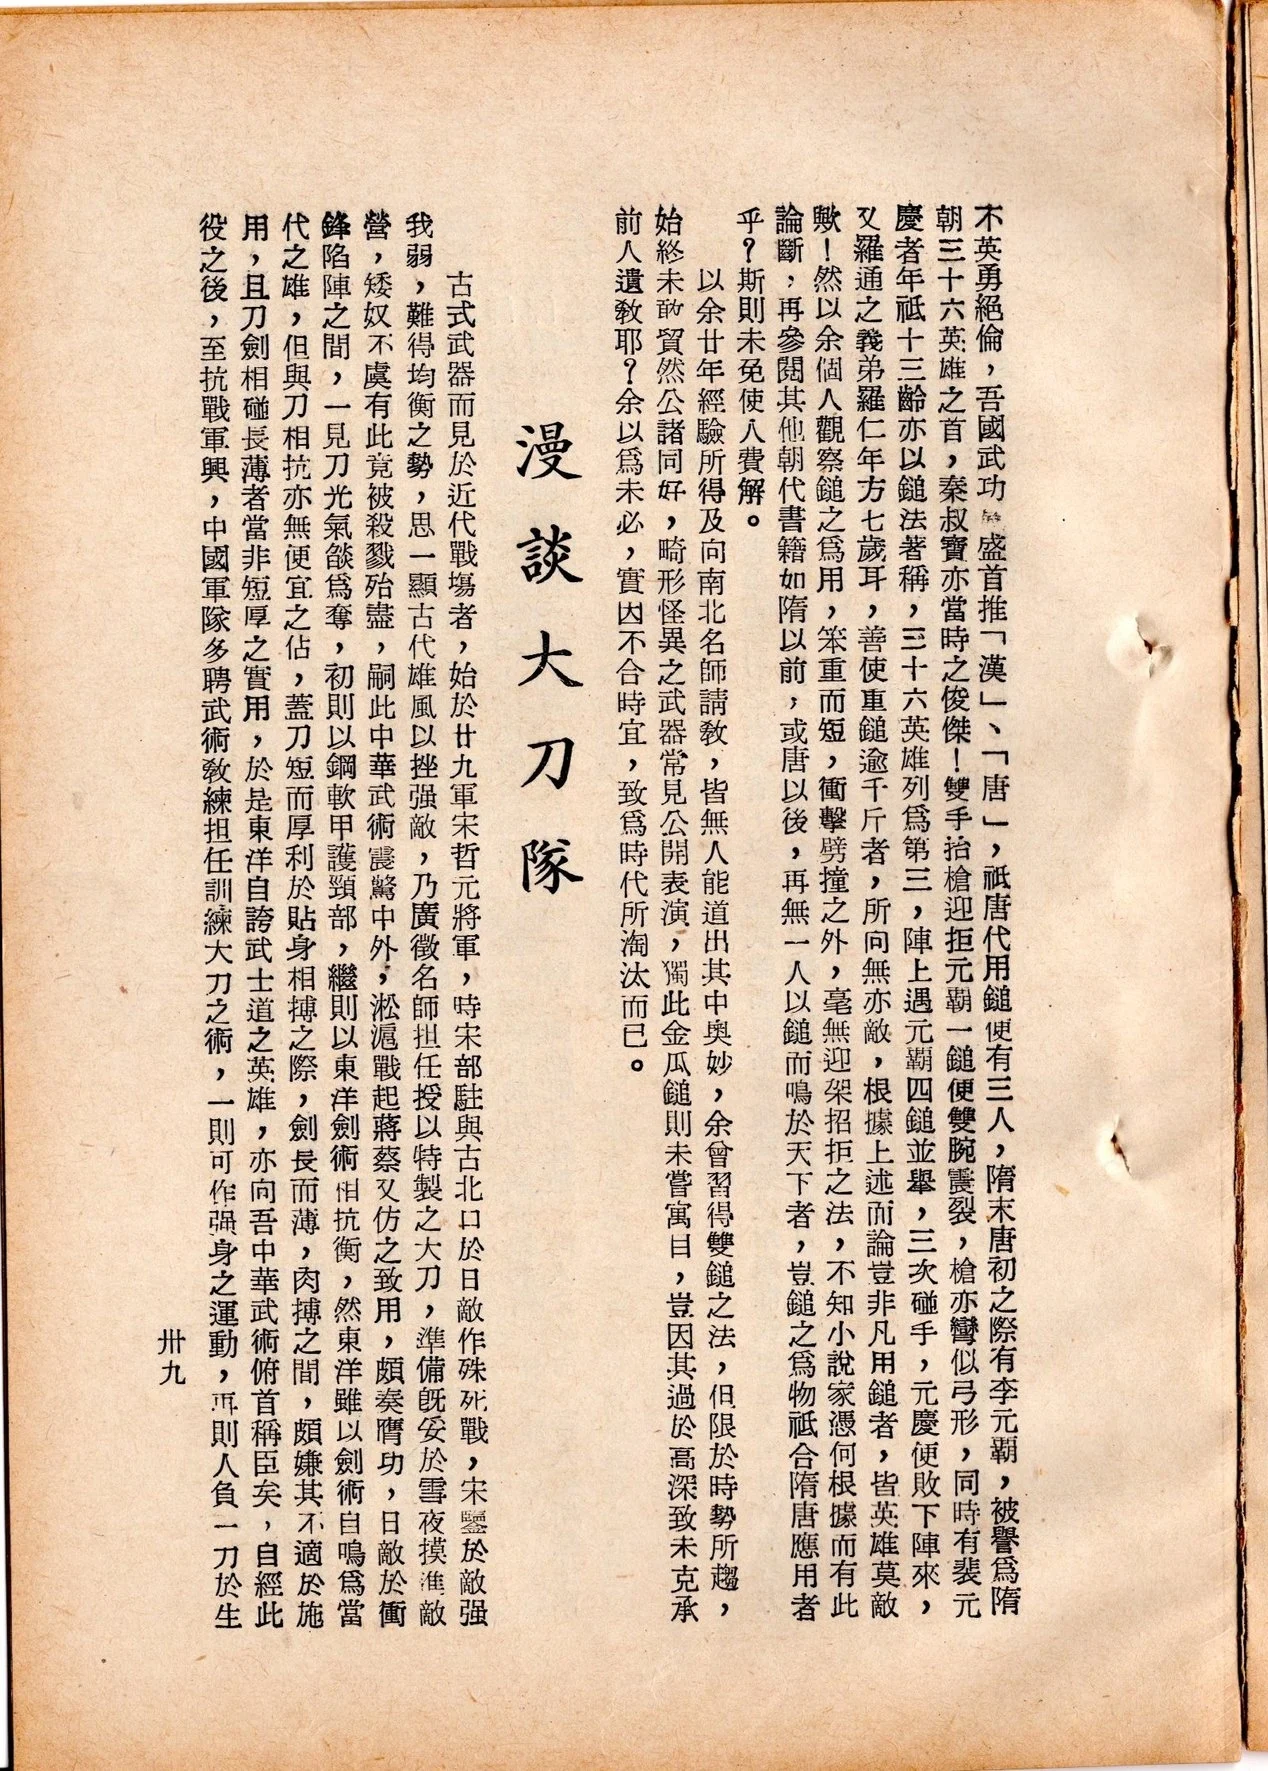 不英勇絕倫，吾國武功 盛首推「漢」、「唐」，祇唐代用鎚便有三人，隋末唐初之際有李元覇，被譽爲隋
朝三十六英雄之首，秦叔寶亦當時之俊傑！雙手抬槍迎拒元覇一鎚便雙腕震裂，槍亦彎似弓形，同時有裴元
慶者年祗十三齡亦以鎚法著稱，三十六英雄列爲第三，陣上遇元覇四鎚並舉，三次碰手，元慶便敗下陣來，
又羅通之義弟羅仁年方七歲耳，善使重鎚逾千斤者，所向無亦敵，根據上述而論豈非凡用鎚者，皆英雄莫敵
歟！然以余個人觀察鎚之爲用，笨重而短，衝擊劈撞之外，毫無迎架招拒之法，不知小說家憑何根據而有此
論斷，再參閱其他朝代書籍如隋以前，或唐以後，再無一人以鎚而鳴於天下者，豈鎚之爲物祗合隋唐應用者
乎？斯則未免使人費解。
以余廿年經驗所得及向南北名師請敎，皆無人能道出其中奥妙，余曾習得雙鎚之法，但限於時勢所趨，
始終未敢貿然公諸同好，畸形怪異之武器常見公開表演，獨此金瓜鎚則未嘗寓目，豈因其過於高深致未克承
前人遺敎耶？余以爲未必，實因不合時宜，致爲時代所淘汰而已。
漫談大刀隊
古式武器而見於近代戰塲者，始於廿九軍宋哲元將軍，時宋部駐與古北口於日敵作殊死戰，宋鑒於敵强
我弱，難得均衡之勢，思一顯古代雄風以挫强敵，乃廣徵名師担任授以特製之大刀，準備旣妥於雪夜摸進敵
營，矮奴不虞有此竟被殺戮殆盡，嗣此中華武術震驚中外，淞滬戰起蔣蔡又仿之致用，頗奏膚功，日敵於衝
鋒陷陣之間，一見刀光氣燄爲奪，初則以鋼軟甲護頸部，繼則以東洋劍術相抗衡，然東洋雖以劍術自鳴爲當
代之雄，但與刀相抗亦無便宜之佔，蓋刀短而厚利於貼身相搏之際，劍長而薄，肉搏之間，頗嫌其不適於施
用，且刀劍相碰長薄者當非短厚之實用，於是東洋自誇武士道之英雄，亦向吾中華武術俯首稱臣矣，自經此
役之後，至抗戰軍興，中國軍隊多聘武術敎練担任訓練大刀之術，一則可作强身之運動，再則人負一刀於生
卅九